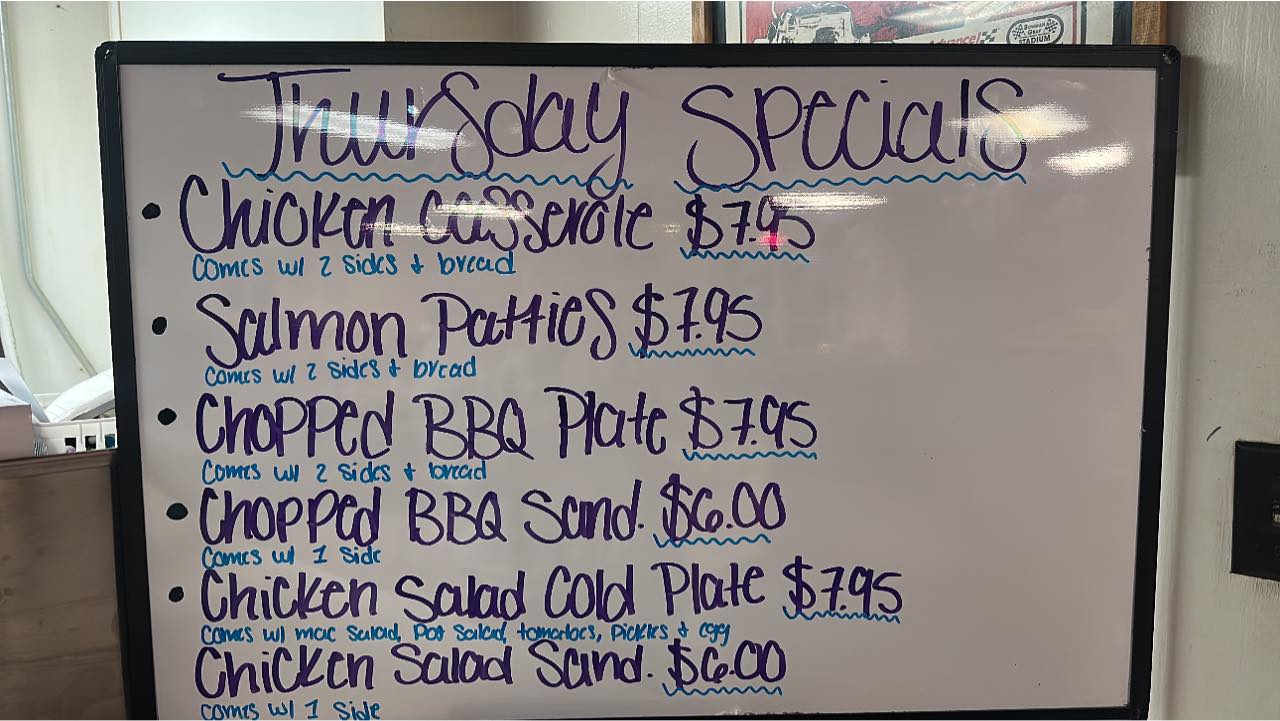 Advance!
BOWMAN
GRAY
STADIUM
Thursday Specials
• Chicken Casserole $7.95
Comes w/ 2 sides + bread
• Salmon Patties $7.95
Comes w/ 2 sides + bread
• Chopped BBQ Plate $7.95
Comes w/ 2 sides + bread
• Chopped BBQ Sand. $6.00
Comes w/ 1 side
• Chicken Salad Cold Plate $7.95
Comes w/ mac salad, pot salad, tomatoes, pickles + egg
Chicken Salad Sand. $6.00
comes w/ 1 side